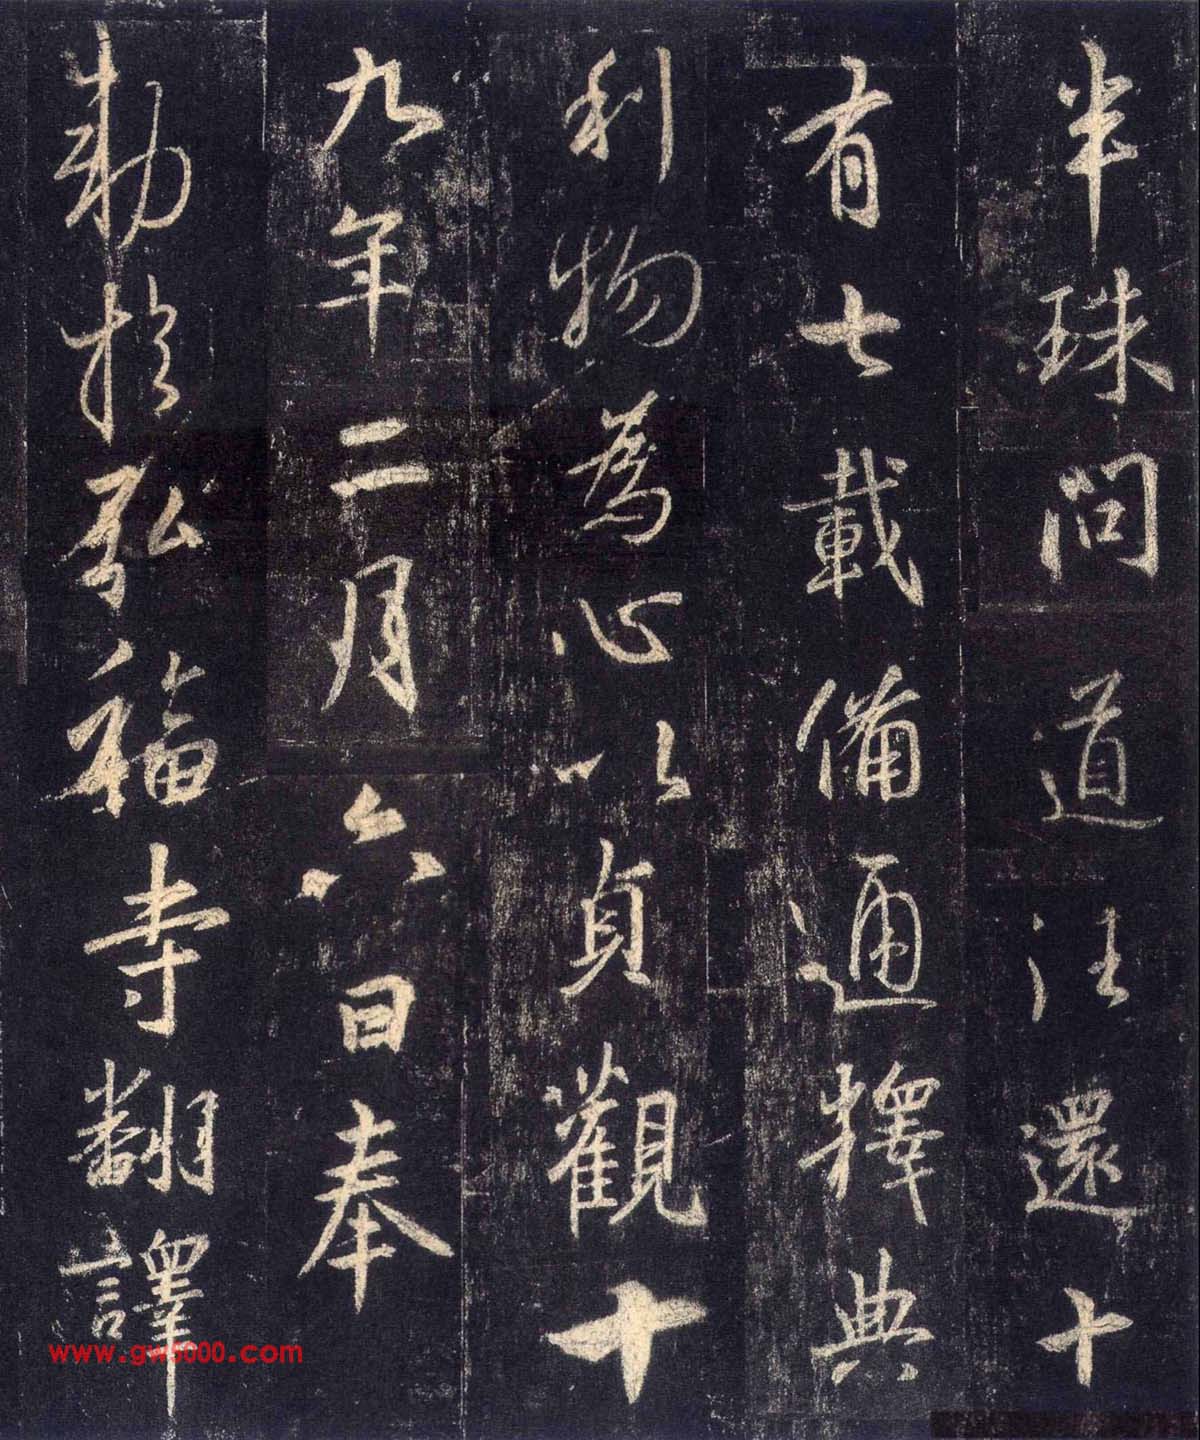 半珠問道往還十
有七載備通釋典
利物為心以貞觀十
九年二月六日奉
勅於弘福寺翻譯
www.gw5000.com